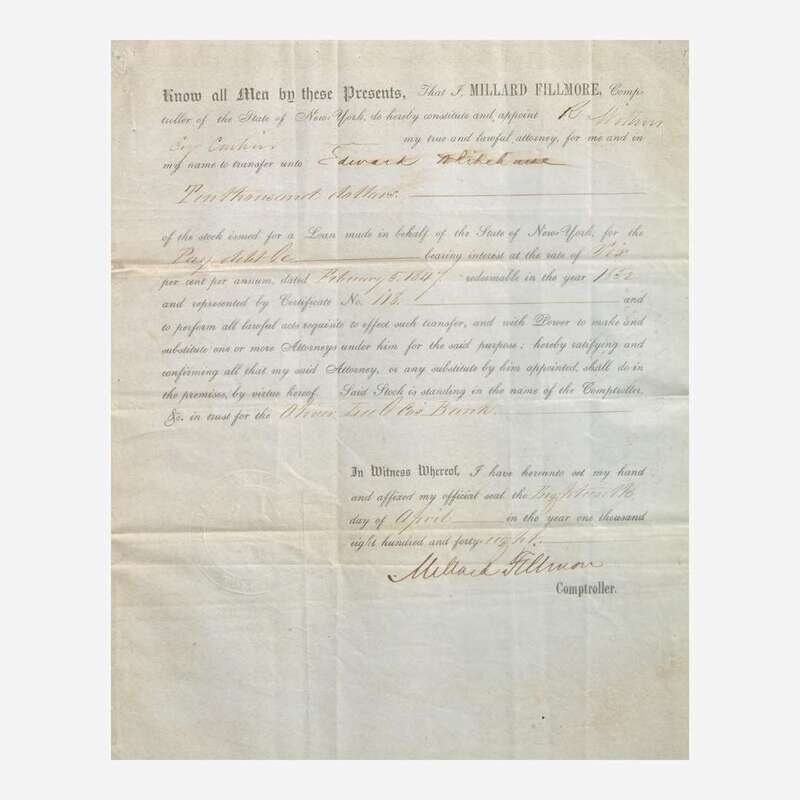 Know all Men by these Presents, That I, MILLARD FILLMORE, Comp-
troller of the State of New-York, do hereby constitute and appoint R
my true and lawful attorney, for me and in
my name to transfer unto Edward Whitehouse
Ten thousand dollars.
of the stock issued for a Loan made in behalf of the State of New-York, for the
Pay debt &c bearing interest at the rate of Six
per cent per annum, dated February 5. 1847 redeemable in the year
and represented by Certificate No. 118. and
to perform all lawful acts requisite to effect such transfer, and with Power to make and
substitute one or more Attorneys under him for the said purpose; hereby ratifying and
confirming all that my said Attorney, or any substitute by him appointed, shall do in
the premises, by virtue hereof. Said Stock is standing in the name of the Comptroller,
&c. in trust for the Oliver Lee & Co's Bank.
In Witness Whereof, I have hereunto set my hand
and affixed my official seal, the Eighteenth
day of April in the year one thousand
eight hundred and forty-eight.
Millard Fillmore
Comptroller.